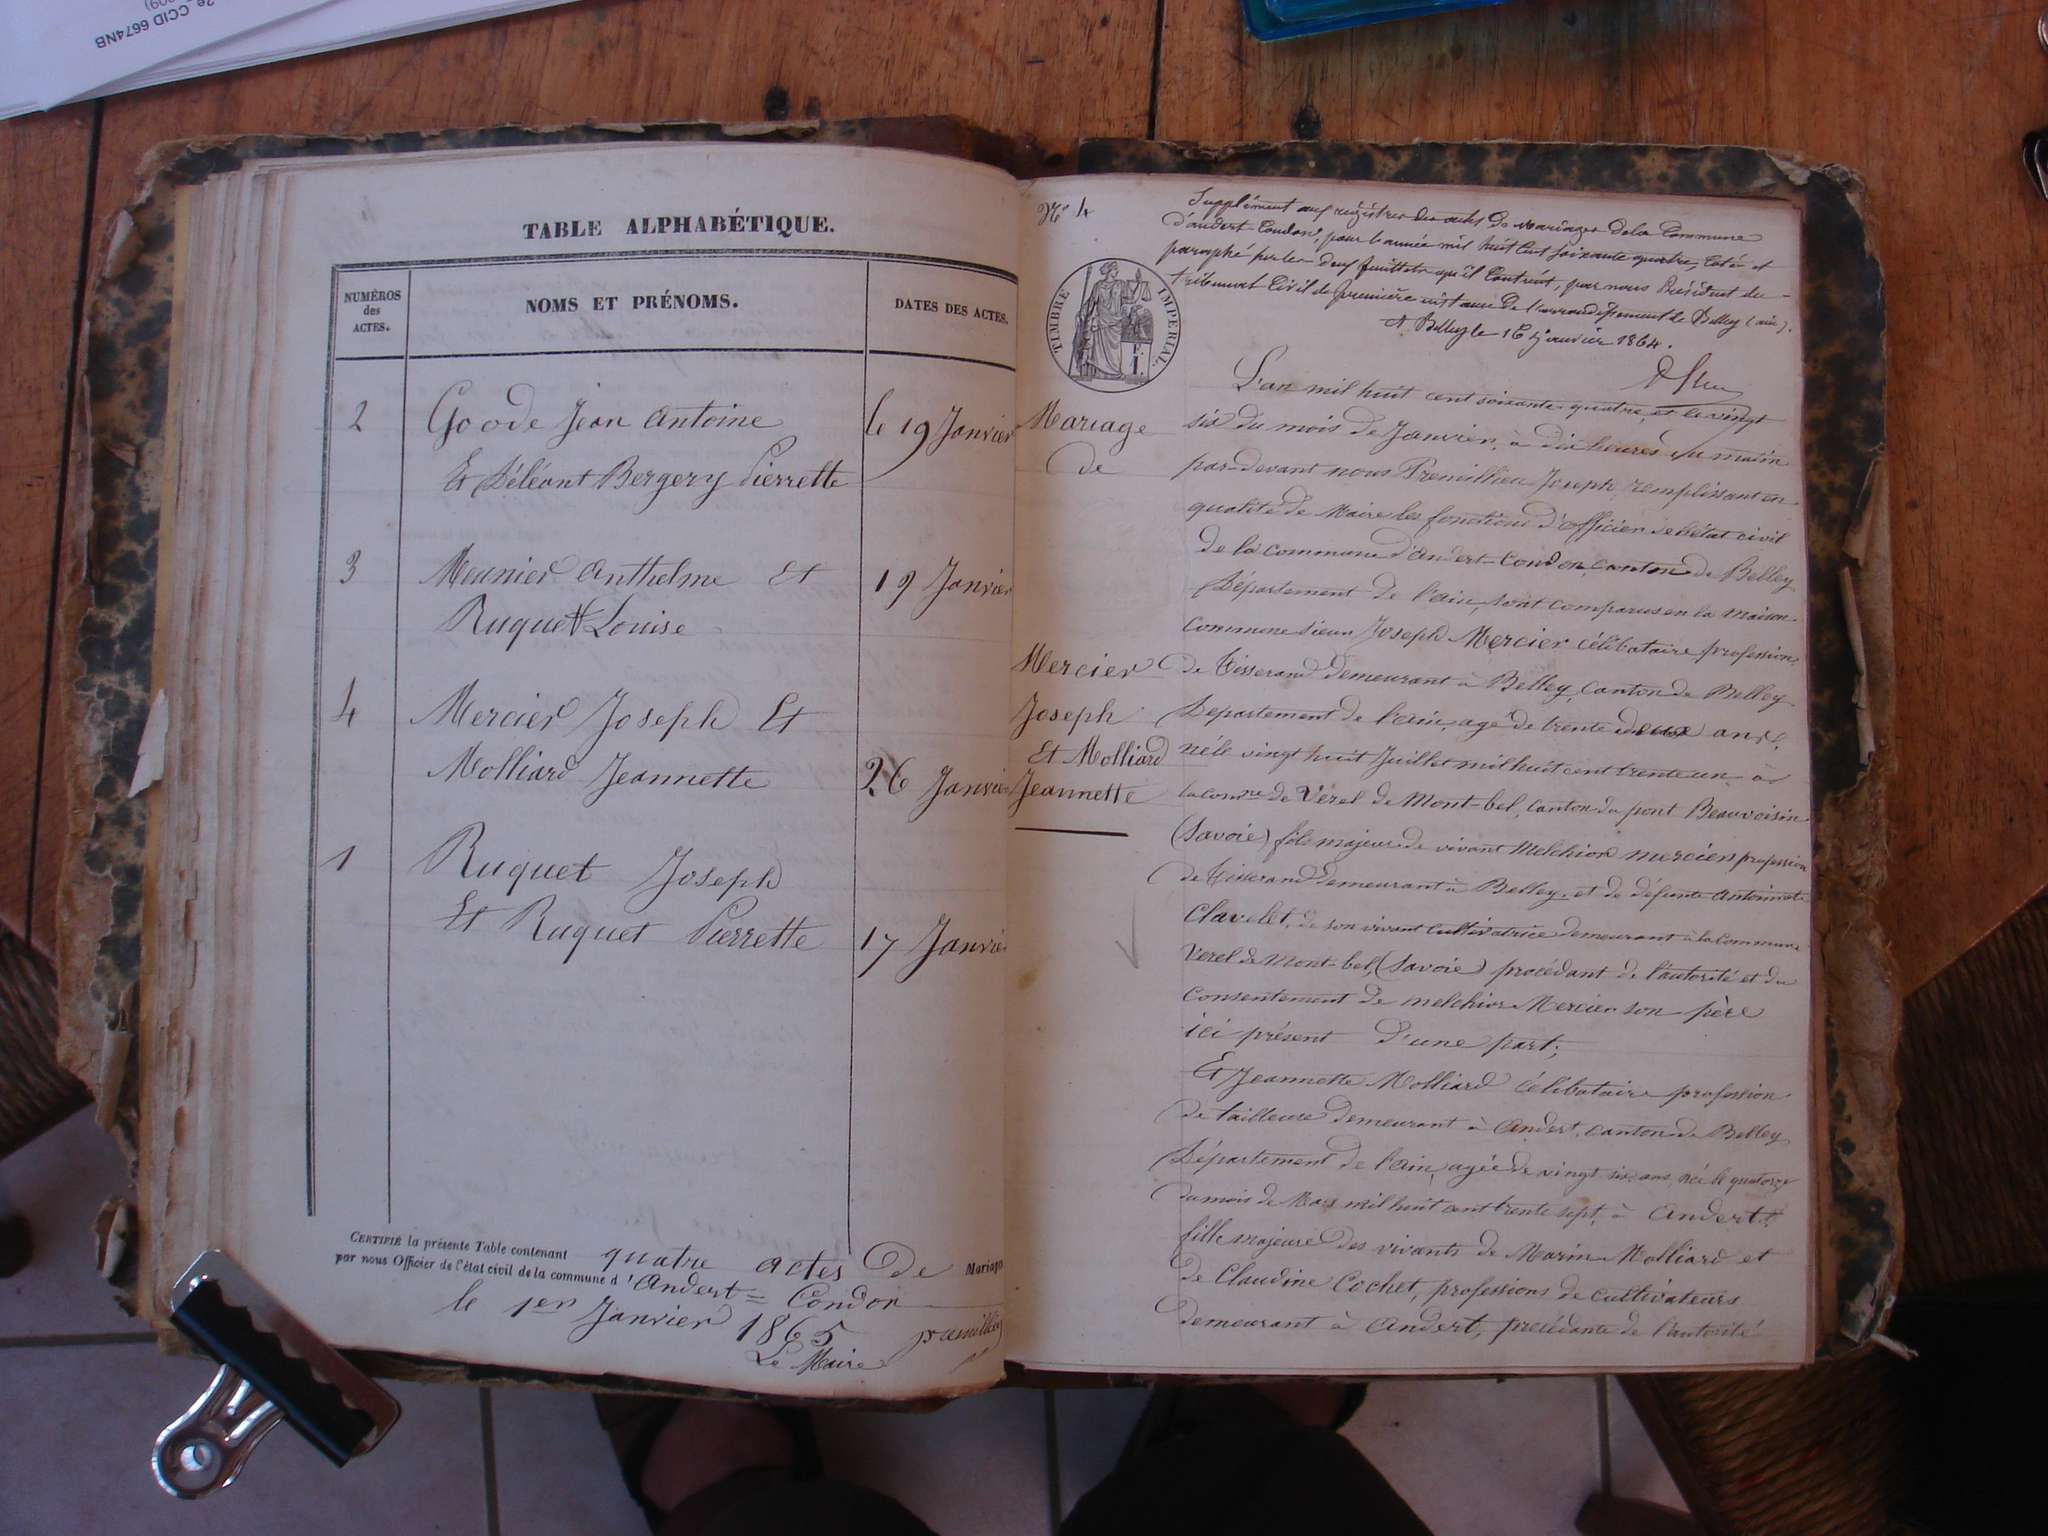 2e, CCID 6674NB
TABLE ALPHABÉTIQUE.
NUMÉROS
des
ACTES.
NOMS ET PRÉNOMS.
DATES DES ACTES.
2
Goode Jean Antoine
le 19 Janvier
Et Déléant Bergery Pierrette
3
Meunier Anthelme Et
19 Janvier
Ruquet Louise
4
Mercier Joseph Et
Molliard Jeannette
26 Janvier
1
Ruquet Joseph
Et Ruquet Pierrette
17 Janvier
CERTIFIÉ la présente Table contenant quatre actes de Mariage
par nous Officier de l'état civil de la commune d'Andert = Condon
le 1er Janvier 1865
Le Maire
N° 4
Supplément aux registres des actes de mariages de la Commune
d'andert-Condon, pour l'année mil huit cent soixante quatre, Coté et
paraphé par les deux feuillets qu'il Contient, par nous Président du
tribunal Civil de première instance de l'arrondissement de Belley (ain).
A Belley le 16 Janvier 1864.
TIMBRE IMPÉRIAL
Mariage
de
Mercier
Joseph
Et Molliard
Jeannette
L'an mil huit cent soixante quatre, et le vingt
six du mois de Janvier, à dix heures du matin
par-devant nous Premillieu Joseph, remplissant en
qualité de Maire les fonctions d'officier de l'état civil
de la commune d'Andert-Condon, canton de Belley
Département de l'ain, sont comparus en la maison
commune sieur Joseph Mercier célibataire profession
de Tisserand demeurant à Belley, canton de Belley
Département de l'ain, agé de trente deux ans,
né le vingt huit Juillet mil huit cent trente un à
la comne de Vérel de Mont-bel, canton du pont Beauvoisin
(Savoie) fils majeur de vivant Melchior mercier profession
de Tisserand demeurant à Belley, et de défunte Antoinette
Clavelet, de son vivant cultivatrice demeurant à la Commune
Verel de Mont-bel, (Savoie) procédant de l'autorité et du
consentement de melchior Mercier son père
ici présent d'une part;
Et Jeannette Molliard célibataire profession
de tailleuse demeurant à Andert, canton de Belley
Département de l'Ain, agée de vingt six ans, née le quatorze
du mois de Mars mil huit cent trente sept, à Andert,
fille majeure des vivants de Marin Molliard et
de Claudine Cochet, professions de cultivateurs
demeurant à Andert, procédante de l'autorité